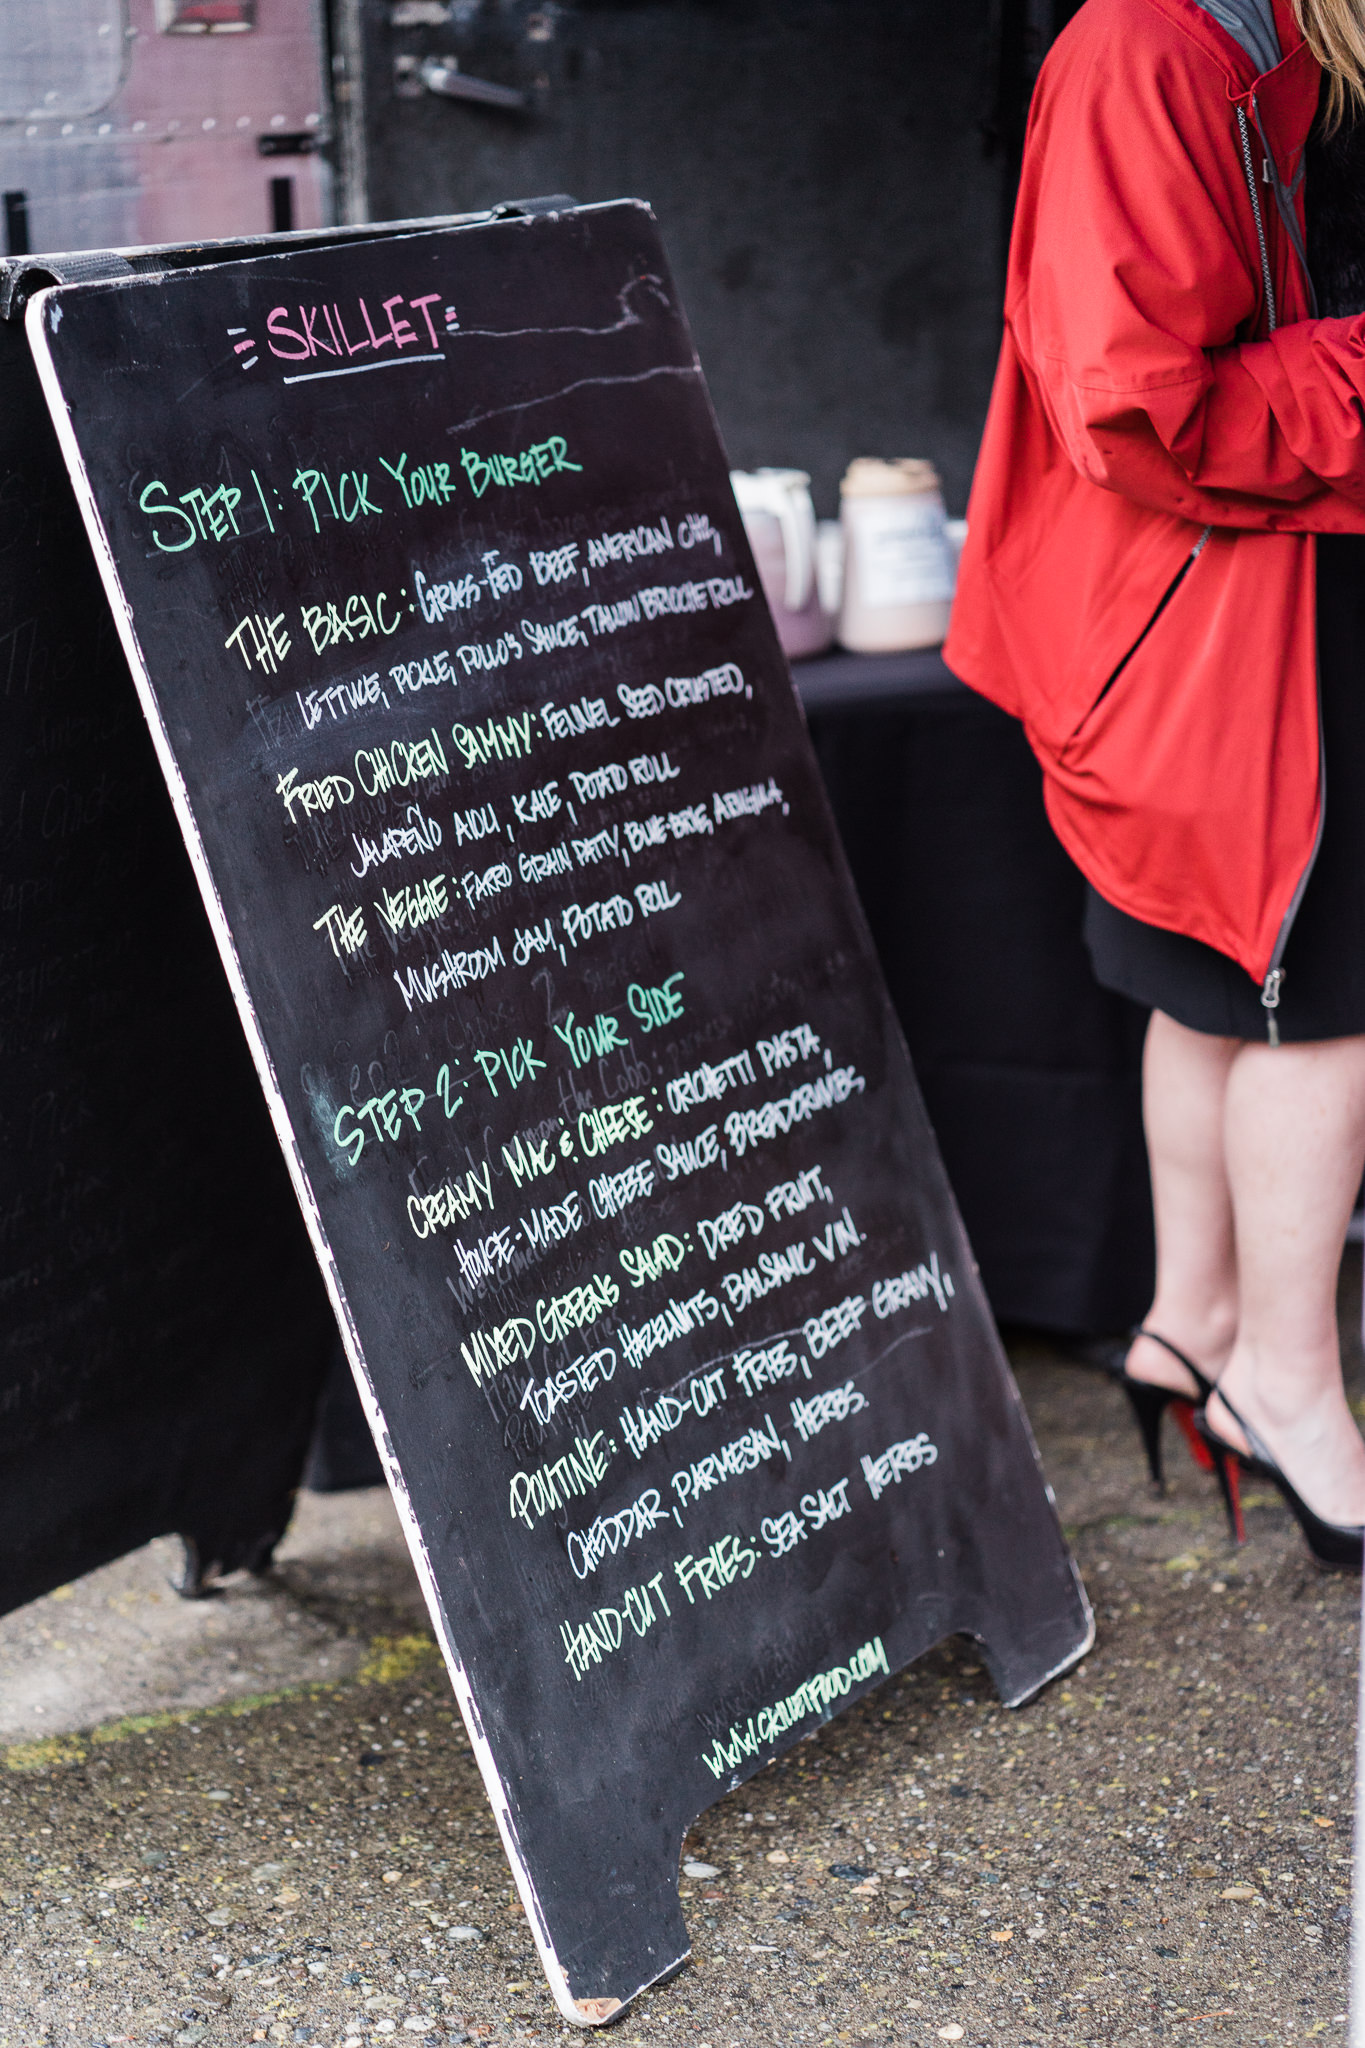 SKILLET
STEP 1: PICK YOUR BURGER
THE BASIC: GRASS-FED BEEF, AMERICAN CHS,
LETTUCE, PICKLE, POLLO'S SAUCE, TALLOW BRIOCHE ROLL
FRIED CHICKEN SAMMY: FENNEL SEED CRUSTED,
JALAPEÑO AIOLI, KALE, POTATO ROLL
THE VEGGIE: FARRO GRAIN PATTY, BLUE-BRIE, ARUGULA,
MUSHROOM JAM, POTATO ROLL
STEP 2: PICK YOUR SIDE
CREAMY MAC & CHEESE: ORICHETTI PASTA,
HOUSE-MADE CHEESE SAUCE, BREADCRUMBS
MIXED GREENS SALAD: DRIED FRUIT,
TOASTED HAZELNUTS, BALSAMIC VIN.
POUTINE: HAND-CUT FRIES, BEEF GRAVY,
CHEDDAR, PARMESAN, HERBS.
HAND-CUT FRIES: SEA SALT HERBS
WWW.SKILLETFOOD.COM